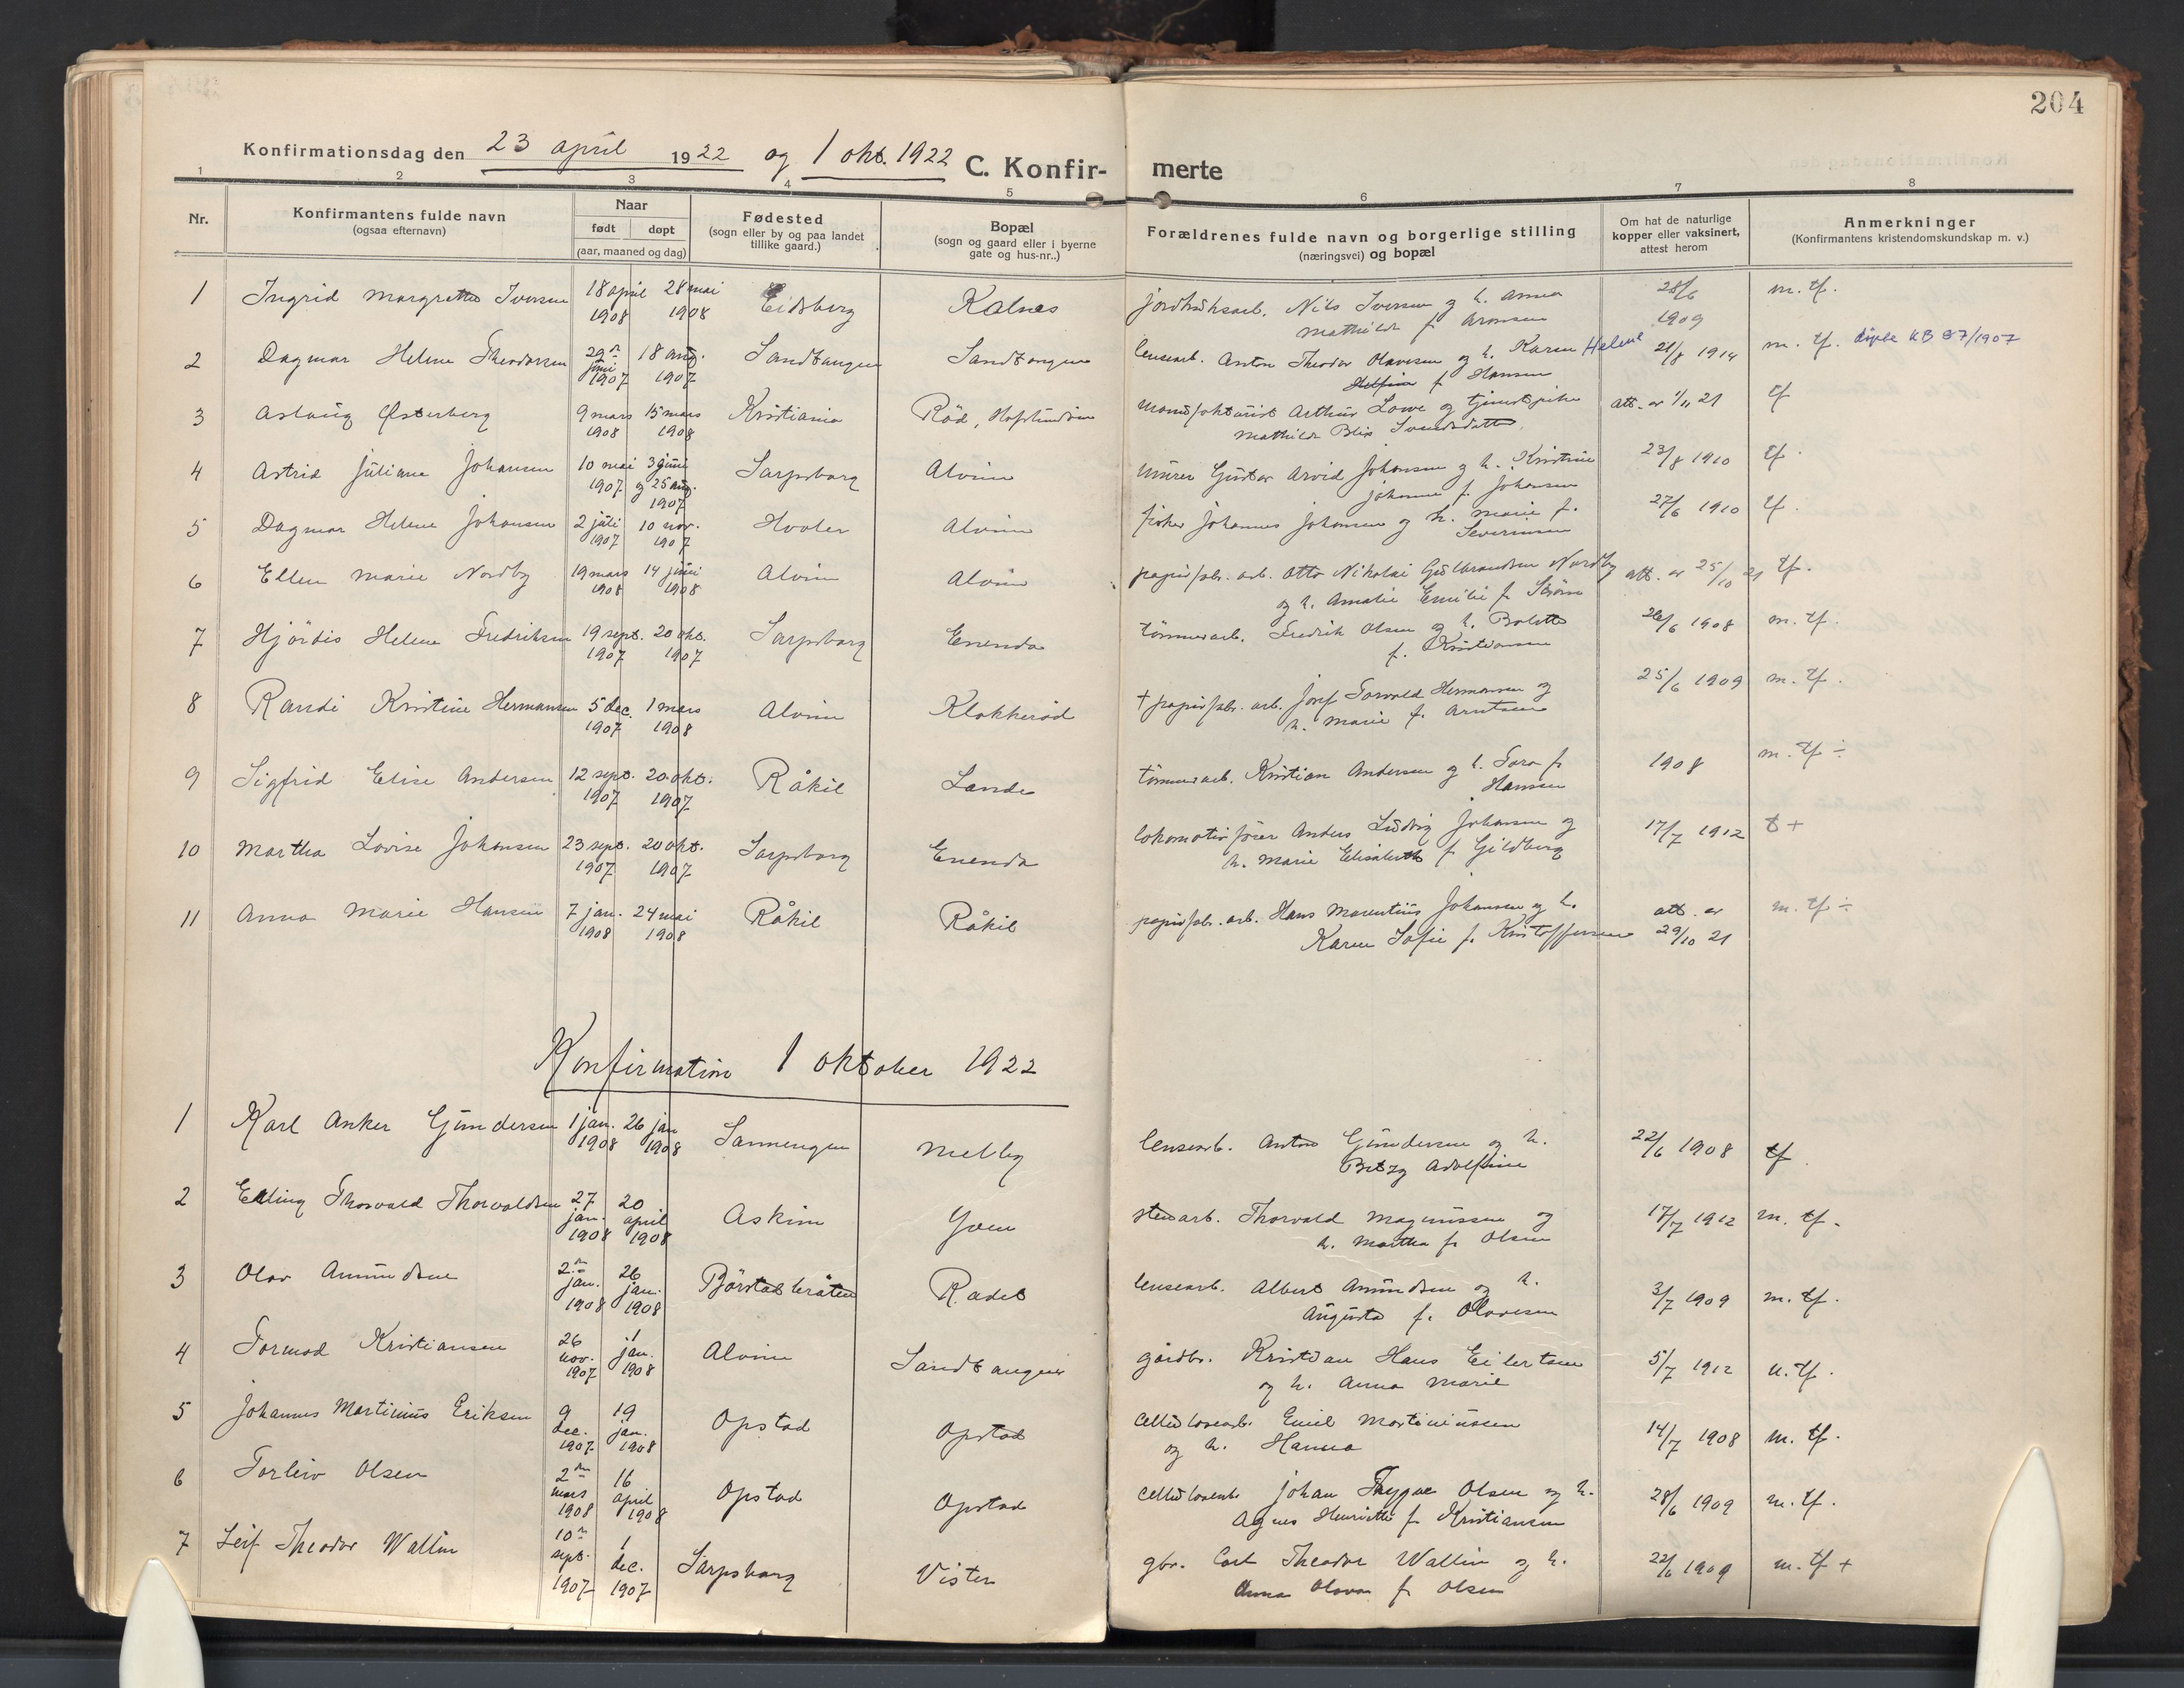 204
Konfirmationsdag den 23 april 1922 og 1 okt. 1922 C. Konfir- merte
1 2 3 4 5 6 7 8
Nr.
Konfirmantens fulde navn
(ogsaa efternavn)
Naar
født døpt
(aar, maaned og dag)
Fødested
(sogn eller by og paa landet
tillike gaard.)
Bopæl
(sogn og gaard eller i byerne
gate og hus-nr..)
Forældrenes fulde navn og borgerlige stilling
(næringsvei) og bopæl
Om hat de naturlige
kopper eller vaksinert,
attest herom
Anmerkninger
(Konfirmantens kristendomskundskap m. v.)
1 Ingrid Margrethe Iversen 18 april 28 mai Eidsberg Kalnes jordbruksarb. Nils Iversen og h. Anna 28/6 m. tf.
1908 1908 Mathilde f. Aronsen 1909
2 Dagmar Helene Theodorsen 29n juni 18 aug. Sandtangen Sandtangen lensearb. Anton Theodor Olavesen og h. Karen Helene 21/8 1914 m. tf. døpte KB 87/1907
1907 1907 f. Hansen
3 Aslaug Østerberg 9 mars 15 mars Kristiania Röd, Hafslundsøen Manufakturist Arthur Lowe og tjenestepike att. av 1/11 21 tf
1908 1908 Mathilde Blix Svendsdatter
4 Astrid Juliane Johansen 10 mai 3 juni Sarpsborg Alvim Murer Gustav Arvid Johansen og h. Kristine 23/8 1910 tf.
1907 og 25 aug. Johanne f. Johansen
1907
5 Dagmar Helene Johansen 2 juli 10 nov. Hvaler Alvim fisker Johannes Johansen og h. Marie f. 27/6 1910 tf.
1907 1907 Severinsen
6 Ellen Marie Nordby 19 mars 14 juni Alvim Alvim papirfabr. arb. Otto Nikolai Gulbrandsen Nordby att. av 25/10 21 tf.
1908 1908 og h. Amalie Emilie f. Ström
7 Hjördis Helene Fredriksen 19 sept. 20 okt. Sarpsborg Enenda tömmerarb. Fredrik Olsen og h. Bolette 26/6 1908 m. tf.
1907 1907 f. Kristiansen
8 Randi Kristine Hermansen 5 dec. 1 mars Alvim Klokkeröd + papirfabr. arb. Josef Torvald Hermansen og 25/6 1909 m. tf.
1907 1908 h. Marie f. Arntsen
9 Sigfrid Elise Andersen 12 sept. 20 okt. Råkil Lande tömmerarb. Kristian Andersen og h. Tora f. 1908 m. tf ÷
1907 1907 Hansen
10 Martha Lovise Johansen 23 sept. 20 okt. Sarpsborg Enenda lokomotivförer Anders Ludvig Johansen og 17/7 1912 t +
1907 1907 h. Marie Elisabeth f. Gildberg
11 Anna Marie Hansen 7 jan. 24 mai Råkil Råkil papirfabr. arb. Hans Marentius Johansen og h. att. av m. tf ÷
1908 1908 Karen Sofie f. Kristoffersen 29/10 21
Konfirmation 1 oktober 1922
1 Karl Anker Gundersen 1 jan. 26 jan Sannengen Melleby lensearb. Anton Gundersen og h. 22/6 1908 tf.
1908 1908 Betzy Adolfine
2 Erling Thorvald Thorvaldsen 27 jan. 20 april Askim Yven stenarb. Thorvald Magnussen og 17/7 1912 m. tf.
1908 1908 h. Martha f. Olsen
3 Olav Amundsen 2n jan. 26 jan. Börstadbråten Radet lensearb. Albert Amundsen og h. 3/7 1909 m. tf.
1908 1908 Augusta f. Olavesen
4 Tormod Kristiansen 26 nov. 1 jan. Alvim Sandtangen gårdbr. Kristian Hans Eilertsen 5/7 1912 u. tf.
1907 1908 og h. Anna Marie
5 Johannes Martinius Eriksen 9 dec. 19 jan. Opstad Opstad Cellulosearb. Emil Martiniussen 14/7 1908 m. tf.
1907 1908 og h. Hanna
6 Torleiv Olsen 2n mars 16 april Opstad Opstad Cellulosearb. Johan Trygve Olsen og h. 28/6 1909 m. tf.
1908 1908 Agnes Henriette f. Kristiansen
7 Leif Theodor Wallin 10n sept. 1 dec. Sarpsborg Vister gbr. Carl Theodor Wallin og h. 22/6 1909 m. tf +
1907 1907 Anna Olava f. Olsen